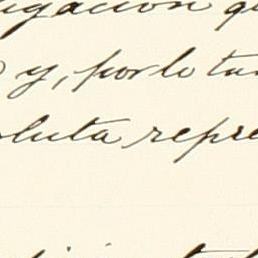 igacion q
y, por lo tan
luta repre